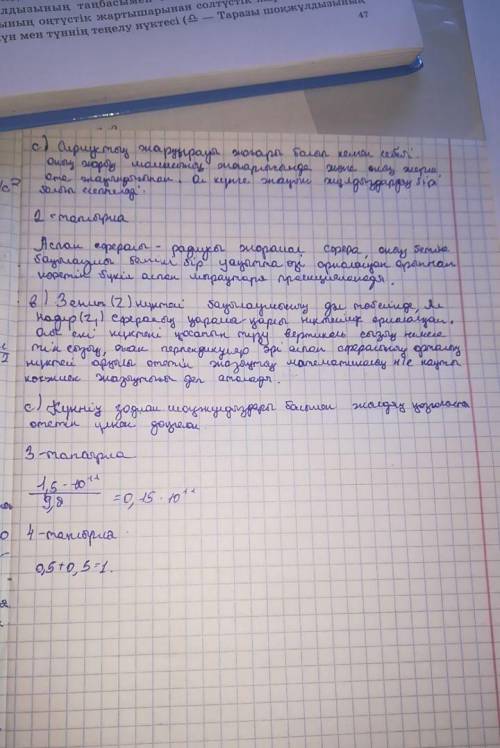 лдызының таңбасымен
ының оңтүстік жартышарынан солтүстік
күн мен түннің теңелу нүктесі (♎ — Таразы шоқжұлдызының
47
с) Сириустың жарқырауы жоғары болып келген себебі
оның жарық болғандықтан және оның жерге
өте жақындығынан. Ол күнге жақын жұлдыздардың бірі
болып есептеледі.
2 - тапсырма
Аспан сферасы - радиусы жорамал сфера, оның бетіне
бақылаушы белгілі бір уақытта өзі орналасқан орыннан
көретін бүкіл аспан шырақтары проекцияланады.
в) Зенит (Z) нүктесі бақылаушының дәл төбесінде, ал
Надир (Z₁) сфераның қарама-қарсы нүктесінде орналасқан.
Осы екі нүктені қосатын түзу вертикаль сызық немесе
тік сызық, оған перпендикуляр әрі аспан сферасының орталық
нүктесі арқылы өтетін жазықтық математикалық н/е нақты
көкжиек жазықтығы деп аталады.
с) Күннің зодиак шоқжұлдыздары басымен жылдық қозғалыста
өтетін үлкен дөңгелек
3 - тапсырма
1,5 · 10¹¹
9,8
= 0,15 · 10¹¹
4 - тапсырма
0,5 + 0,5 = 1.